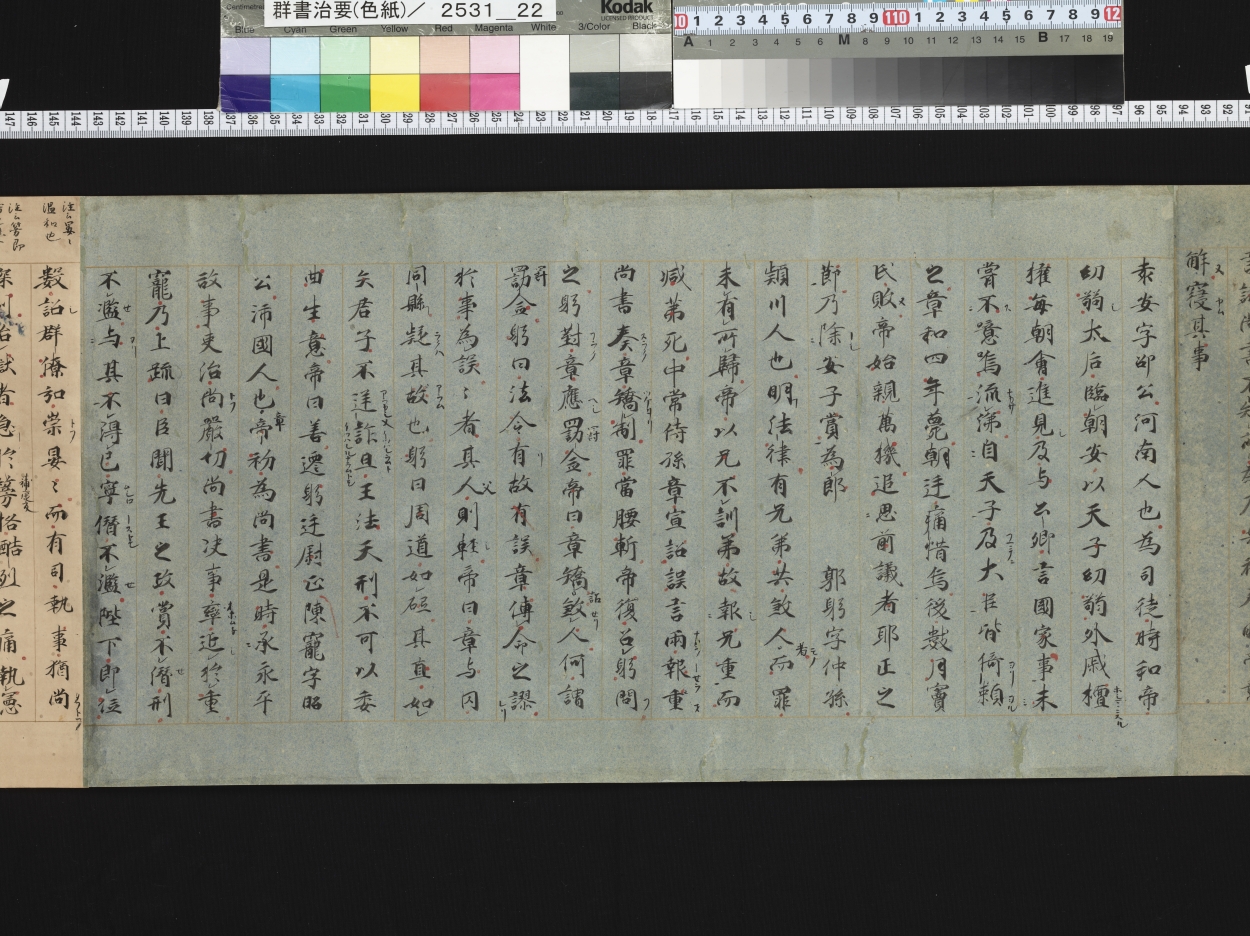 群書治要(色紙)／ 2531__22
Kodak
LICENSED PRODUCT
Blue Cyan Green Yellow Red Magenta White 3/Color Black
解寝其事
袁安字邵公河南人也為司徒時和帝
幼弱太后臨朝安以天子幼弱外戚檀
權每朝會進見及与公卿言國家事未
甞不噫嗚流涕自天子及大臣皆倚頼
之章和四年薨朝廷痛惜焉後数月竇
氏敗帝始親萬機追思前議者耶正之
節乃除安子賞為郎 郭躬字仲孫
潁川人也明法律有兄弟共敓人而罪
未有所歸帝以兄不訓弟故報兄重而
减弟死中常侍孫章宣詔誤言兩報重
尚書奏章矯制罪當腰斬帝復召躬問
之躬對章應罰金帝曰章矯敓人何謂
罰金躬曰法令有故有誤章傳命之謬
於事為誤〻者其人則輕帝曰章与囚
同縣疑其故也躬曰周道如砥其直如
矢君子不逆詐且王法天刑不可以委
曲生意帝曰善遷躬廷尉正陳寵字昭
公沛國人也帝初為尚書是時承永平
故事吏治尚嚴切尚書决事率近於重
寵乃上疏曰臣聞先王之政賞不僭刑
不濫与其不得已寧僭不濫陛下即位
數詔群僚弘崇晏〻而有司執事猶尚